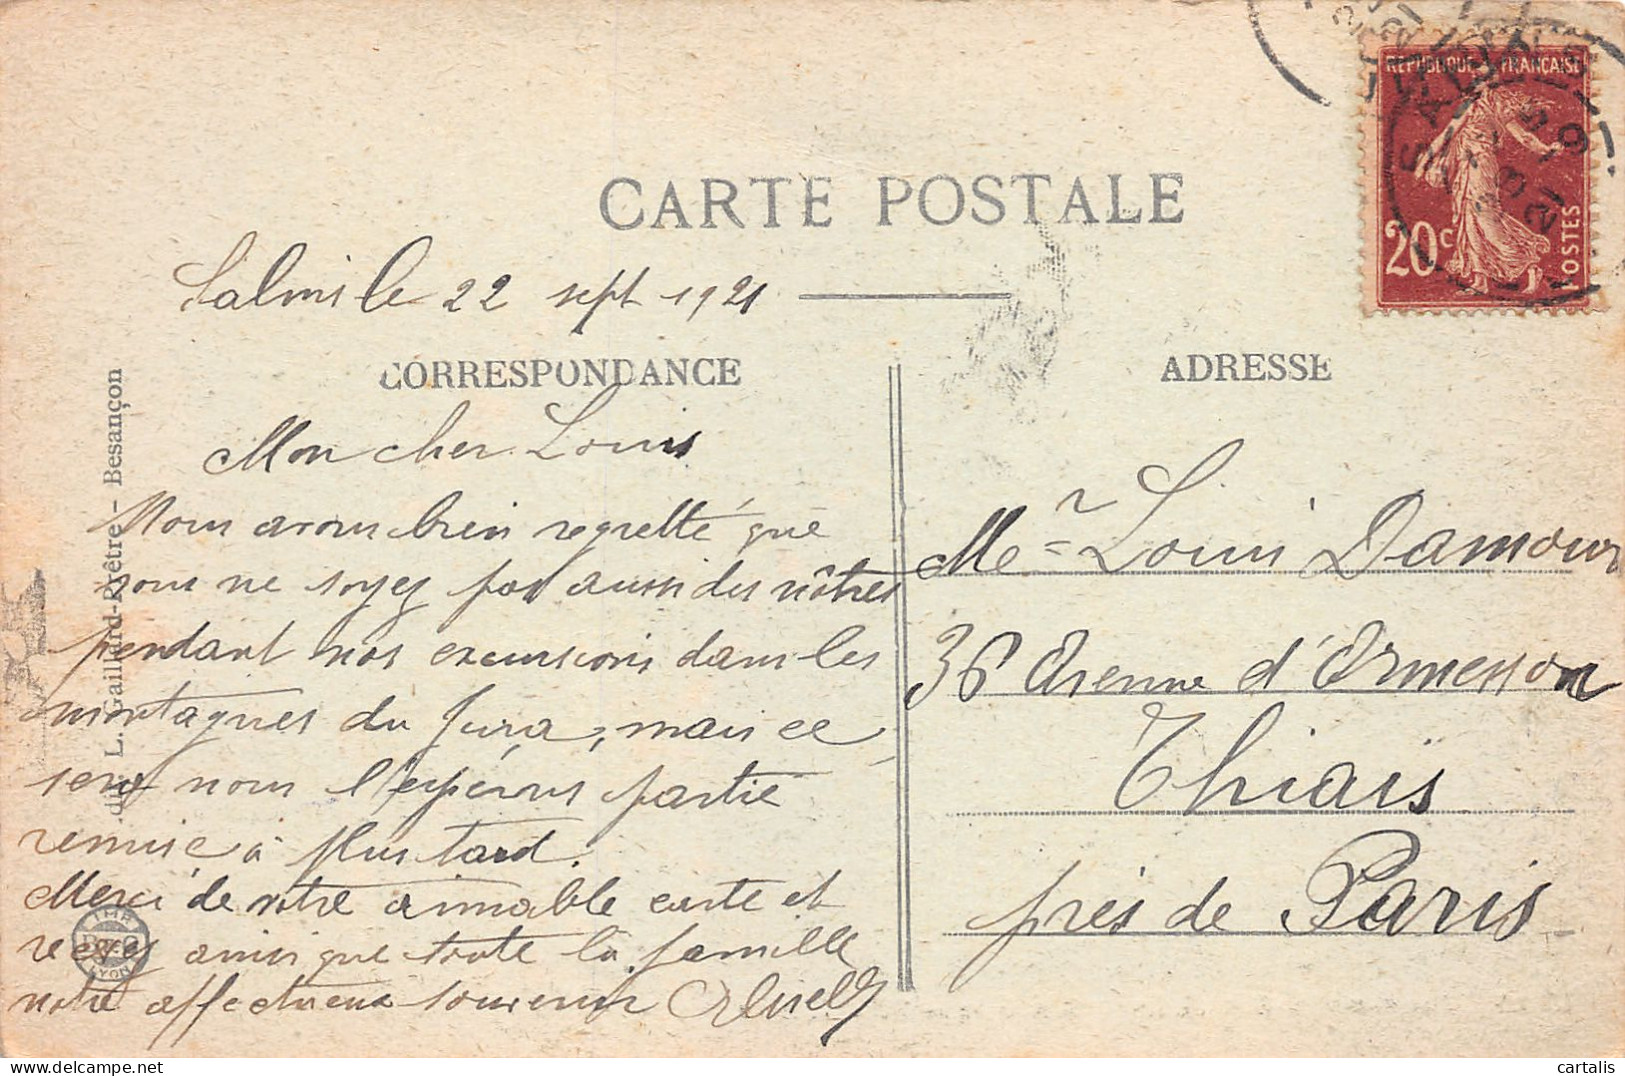 RÉPUBLIQUE FRANÇAISE
20c
POSTES
CARTE POSTALE
22 sept 1921
CORRESPONDANCE
ADRESSE
Mon cher Louis
Nous avons bien regretté que
vous ne soyez pas aussi des nôtres
pendant nos excursions dans les
montagnes du Jura, mais ce
sera nous l'espérons partie
remise à plus tard.
Merci de votre aimable carte et
recevez ainsi que toute la famille
notre affectueux souvenir
Mr Louis Damour
36 Avenue d'Ormesson
Thiais
près de Paris
L. Gaillard-Prêtre - Besançon
IMP
LYON
cartalis
delcampe.net